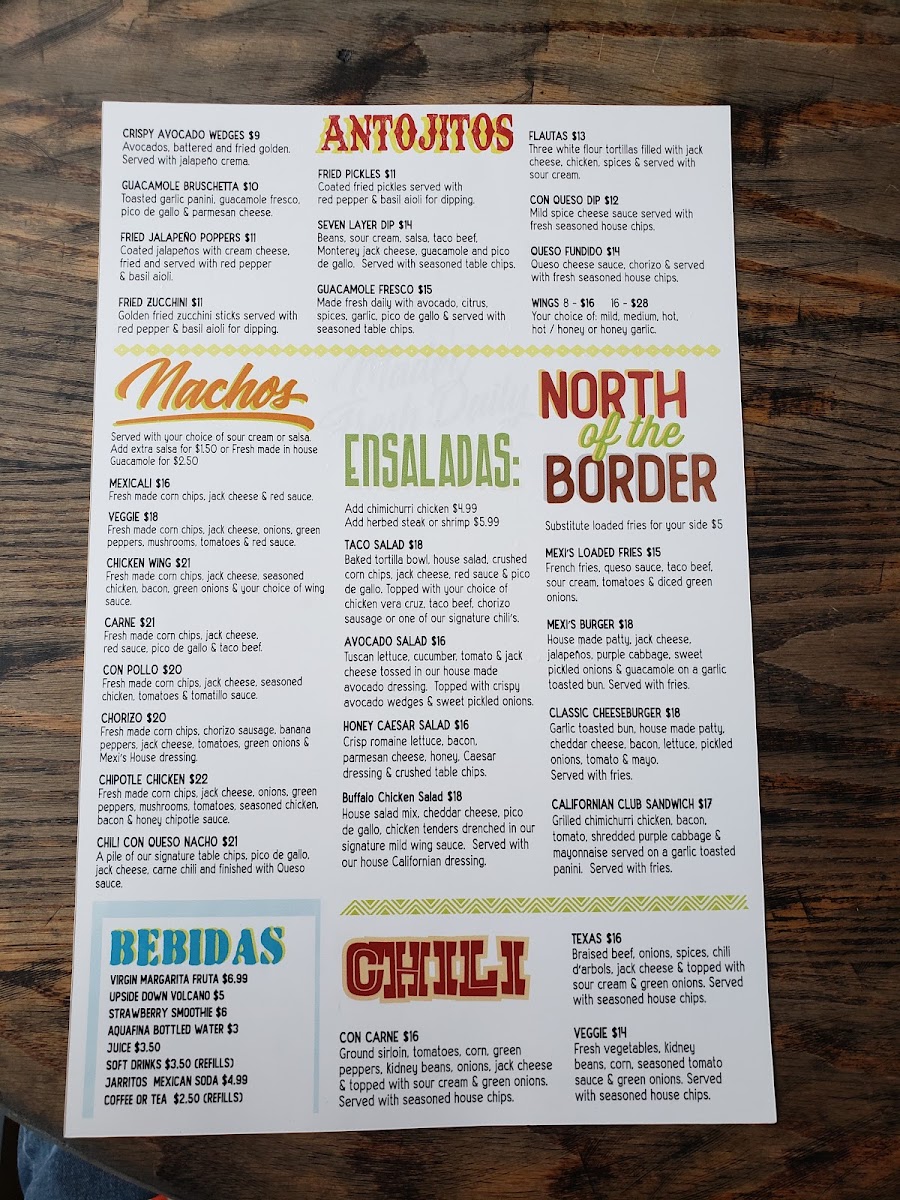 ANTOJITOS
CRISPY AVOCADO WEDGES $9
Avocados, battered and fried golden.
Served with jalapeño crema.
GUACAMOLE BRUSCHETTA $10
Toasted garlic panini, guacamole fresco,
pico de gallo & parmesan cheese.
FRIED JALAPEÑO POPPERS $11
Coated jalapeños with cream cheese,
fried and served with red pepper
& basil aioli.
FRIED ZUCCHINI $11
Golden fried zucchini sticks served with
red pepper & basil aioli for dipping.
FRIED PICKLES $11
Coated fried pickles served with
red pepper & basil aioli for dipping.
SEVEN LAYER DIP $14
Beans, sour cream, salsa, taco beef,
Monterey jack cheese, guacamole and pico
de gallo. Served with seasoned table chips.
GUACAMOLE FRESCO $15
Made fresh daily with avocado, citrus,
spices, garlic, pico de gallo & served with
seasoned table chips.
FLAUTAS $13
Three white flour tortillas filled with jack
cheese, chicken, spices & served with
sour cream.
CON QUESO DIP $12
Mild spice cheese sauce served with
fresh seasoned house chips.
QUESO FUNDIDO $14
Queso cheese sauce, chorizo & served
with fresh seasoned house chips.
WINGS 8 - $16 16 - $28
Your choice of: mild, medium, hot,
hot / honey or honey garlic.
Nachos
Served with your choice of sour cream or salsa.
Add extra salsa for $1.50 or Fresh made in house
Guacamole for $2.50
MEXICALI $16
Fresh made corn chips, jack cheese & red sauce.
VEGGIE $18
Fresh made corn chips, jack cheese, onions, green
peppers, mushrooms, tomatoes & red sauce.
CHICKEN WING $21
Fresh made corn chips, jack cheese, seasoned
chicken, bacon, green onions & your choice of wing
sauce.
CARNE $21
Fresh made corn chips, jack cheese,
red sauce, pico de gallo & taco beef.
CON POLLO $20
Fresh made corn chips, jack cheese, seasoned
chicken, tomatoes & tomatillo sauce.
CHORIZO $20
Fresh made corn chips, chorizo sausage, banana
peppers, jack cheese, tomatoes, green onions &
Mexi's House dressing.
CHIPOTLE CHICKEN $22
Fresh made corn chips, jack cheese, onions, green
peppers, mushrooms, tomatoes, seasoned chicken,
bacon & honey chipotle sauce.
CHILI CON QUESO NACHO $21
A pile of our signature table chips, pico de gallo,
jack cheese, carne chili and finished with Queso
sauce.
ENSALADAS:
Add chimichurri chicken $4.99
Add herbed steak or shrimp $5.99
TACO SALAD $18
Baked tortilla bowl, house salad, crushed
corn chips, jack cheese, red sauce & pico
de gallo. Topped with your choice of
chicken vera cruz, taco beef, chorizo
sausage or one of our signature chili's.
AVOCADO SALAD $16
Tuscan lettuce, cucumber, tomato & jack
cheese tossed in our house made
avocado dressing. Topped with crispy
avocado wedges & sweet pickled onions.
HONEY CAESAR SALAD $16
Crisp romaine lettuce, bacon,
parmesan cheese, honey, Caesar
dressing & crushed table chips.
Buffalo Chicken Salad $18
House salad mix, cheddar cheese, pico
de gallo, chicken tenders drenched in our
signature mild wing sauce. Served with
our house Californian dressing.
NORTH
of the
BORDER
Substitute loaded fries for your side $5
MEXI'S LOADED FRIES $15
French fries, queso sauce, taco beef,
sour cream, tomatoes & diced green
onions.
MEXI'S BURGER $18
House made patty, jack cheese,
jalapeños, purple cabbage, sweet
pickled onions & guacamole on a garlic
toasted bun. Served with fries.
CLASSIC CHEESEBURGER $18
Garlic toasted bun, house made patty,
cheddar cheese, bacon, lettuce, pickled
onions, tomato & mayo.
Served with fries.
CALIFORNIAN CLUB SANDWICH $17
Grilled chimichurri chicken, bacon,
tomato, shredded purple cabbage &
mayonnaise served on a garlic toasted
panini. Served with fries.
BEBIDAS
VIRGIN MARGARITA FRUTA $6.99
UPSIDE DOWN VOLCANO $5
STRAWBERRY SMOOTHIE $6
AQUAFINA BOTTLED WATER $3
JUICE $3.50
SOFT DRINKS $3.50 (REFILLS)
JARRITOS MEXICAN SODA $4.99
COFFEE OR TEA $2.50 (REFILLS)
CHILI
CON CARNE $16
Ground sirloin, tomatoes, corn, green
peppers, kidney beans, onions, jack cheese
& topped with sour cream & green onions.
Served with seasoned house chips.
TEXAS $16
Braised beef, onions, spices, chili
d'arbols, jack cheese & topped with
sour cream & green onions. Served
with seasoned house chips.
VEGGIE $14
Fresh vegetables, kidney
beans, corn, seasoned tomato
sauce & green onions. Served
with seasoned house chips.